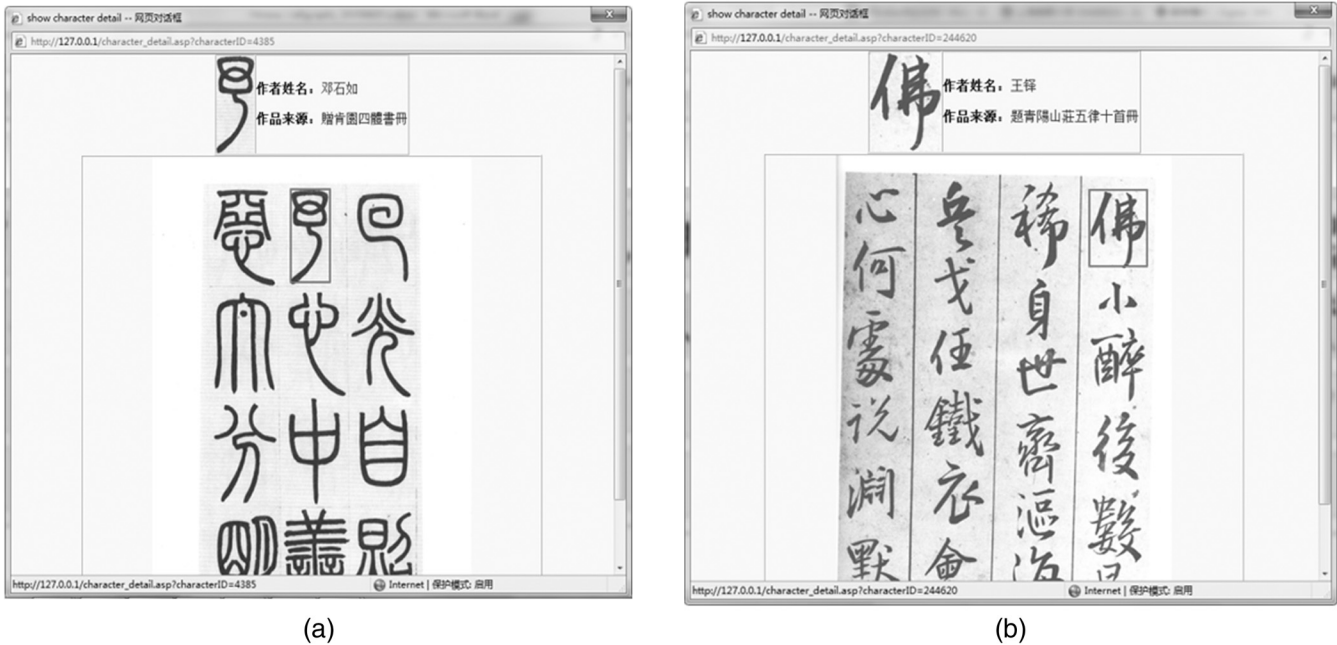 show character detail -- 网页对话框
http://127.0.0.1/character_detail.asp?characterID=4385
作者姓名：邓石如
作品来源：贈肯園四體書冊
光自
心中善
惡分明
http://127.0.0.1/character_detail.asp?characterID=4385
Internet | 保护模式: 启用
(a)
show character detail -- 网页对话框
http://127.0.0.1/character_detail.asp?characterID=244620
佛
作者姓名：王铎
作品来源：題青陽山莊五律十首冊
佛小醉後數
稀身世齊漚海
兵戈任鐵衣會
心何處说淵默
http://127.0.0.1/character_detail.asp?characterID=244620
Internet | 保护模式: 启用
(b)